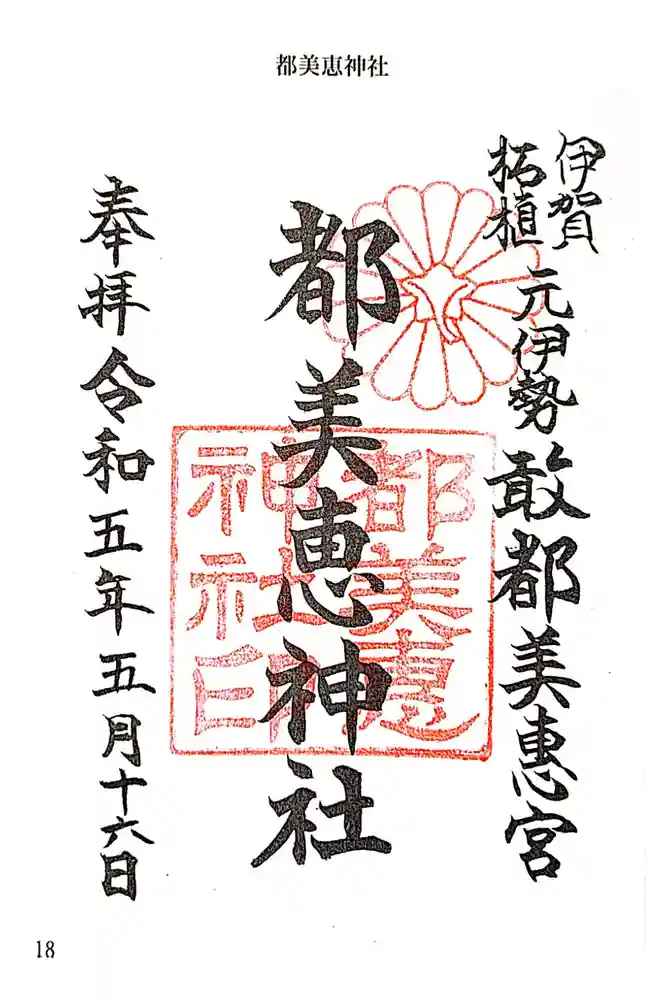 都美恵神社
伊賀
拓植
元伊勢敢都美恵宮
都美恵神社
都美恵
神社印
奉拝令和五年五月十六日
18